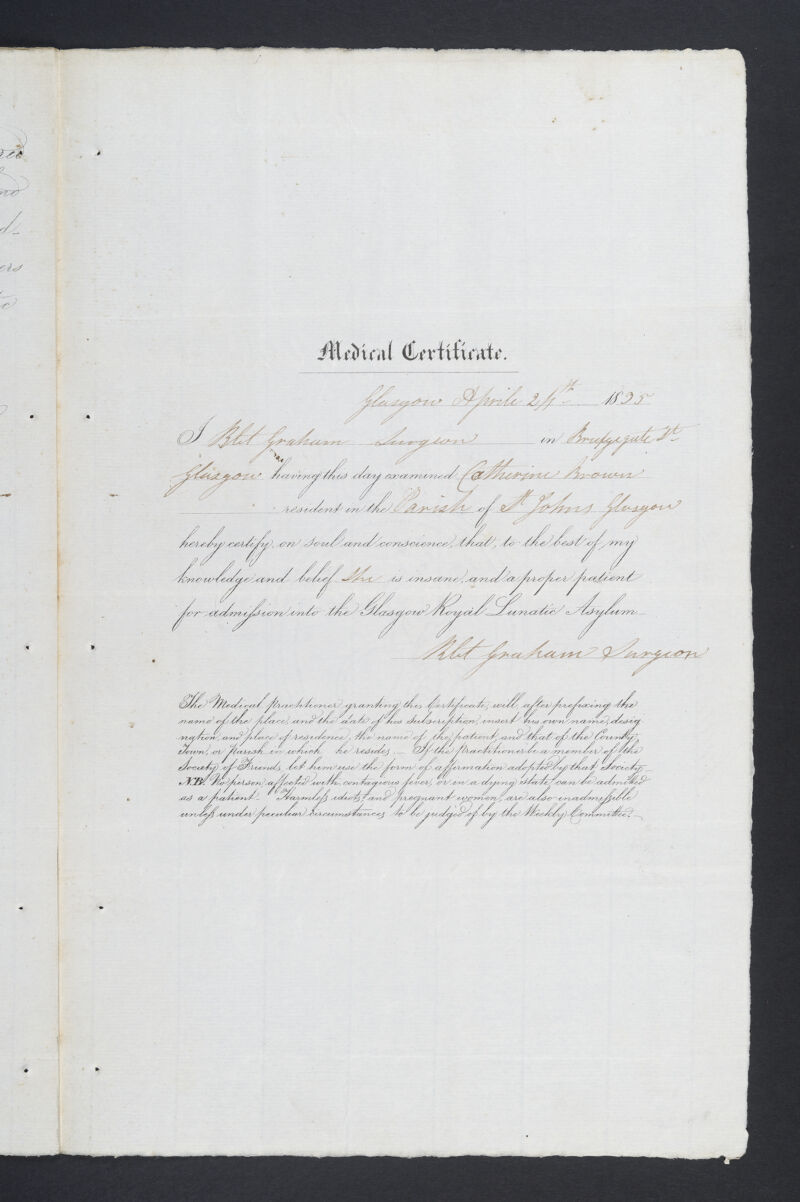 Medical Certificate.
Glasgow Aprile 24th 1835
I Rbt Graham Surgeon in Bridgegate St
Glasgow having this day examined Catherine Brown
resident in the Parish of St Johns Glasgow
hereby certify, on soul and conscience, that, to the best of my
knowledge and belief She is insane, and a proper patient
for admission into the Glasgow Royal Lunatic Asylum
Rbt Graham Surgeon
The Medical practitioner granting this Certificate, will, after prefixing the
name of the place, and the date of his subscription, insert his own name, desig
nation, and place of residence, the name of the patient, and that of the County,
Town, or Parish in which he resides. If the practitioner be a member of the
Society of Friends, let him use the form of affirmation adopted by that Society.
N.B. No person affected with contagious fever, or in a dying state, can be admitted
as a patient. Harmless idiots, and pregnant women, are also inadmissible
unless under peculiar circumstances, to be judged of by the Weekly Committee.